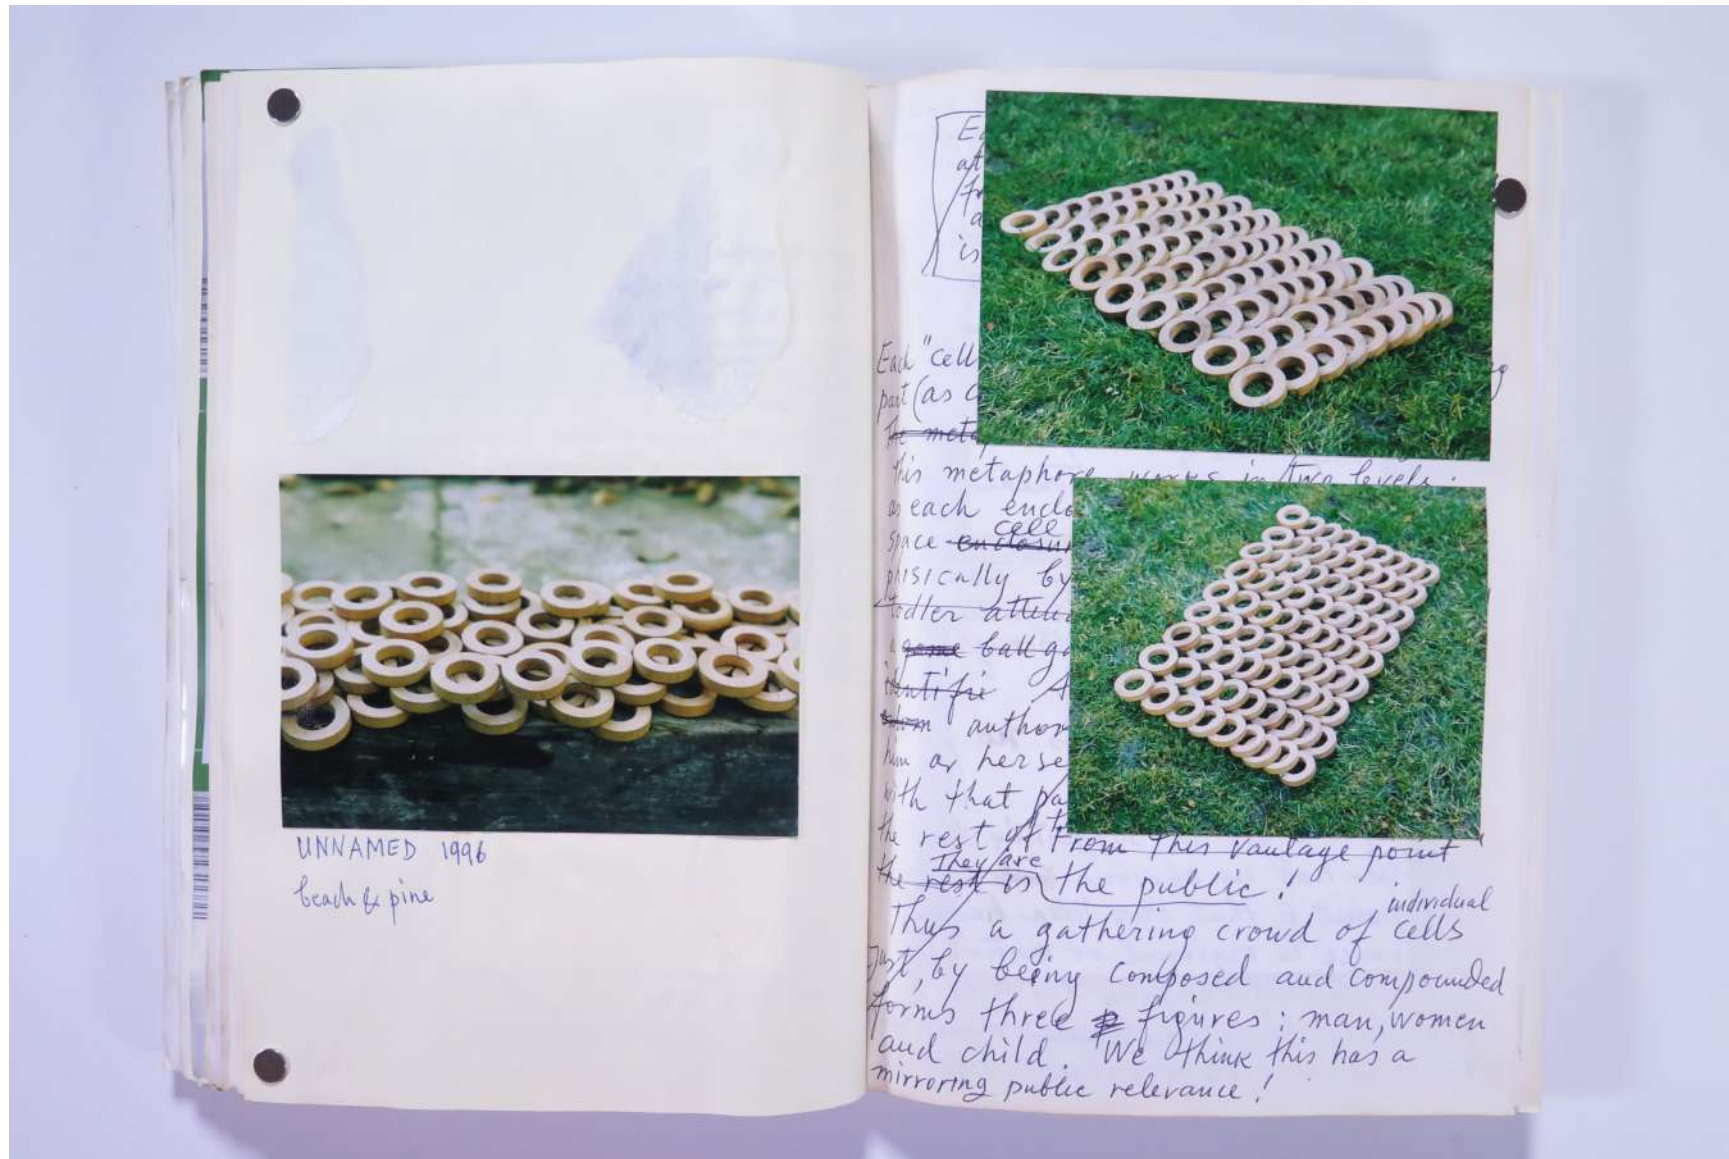 UNNAMED 1996
beach & pine
is
Each "cell
part (as
this metaphore works in two levels:
as each enclo
cell
space enclosur
phisically by
todler atten
a game ball ga
identifie A
author
him or herse
with that pa
the rest of From this vantage point
They are
the rest is the public!
individual
Thus a gathering crowd of cells
Just, by being composed and compounded
forms three figures: man, women
and child. We think this has a
mirroring public relevance!